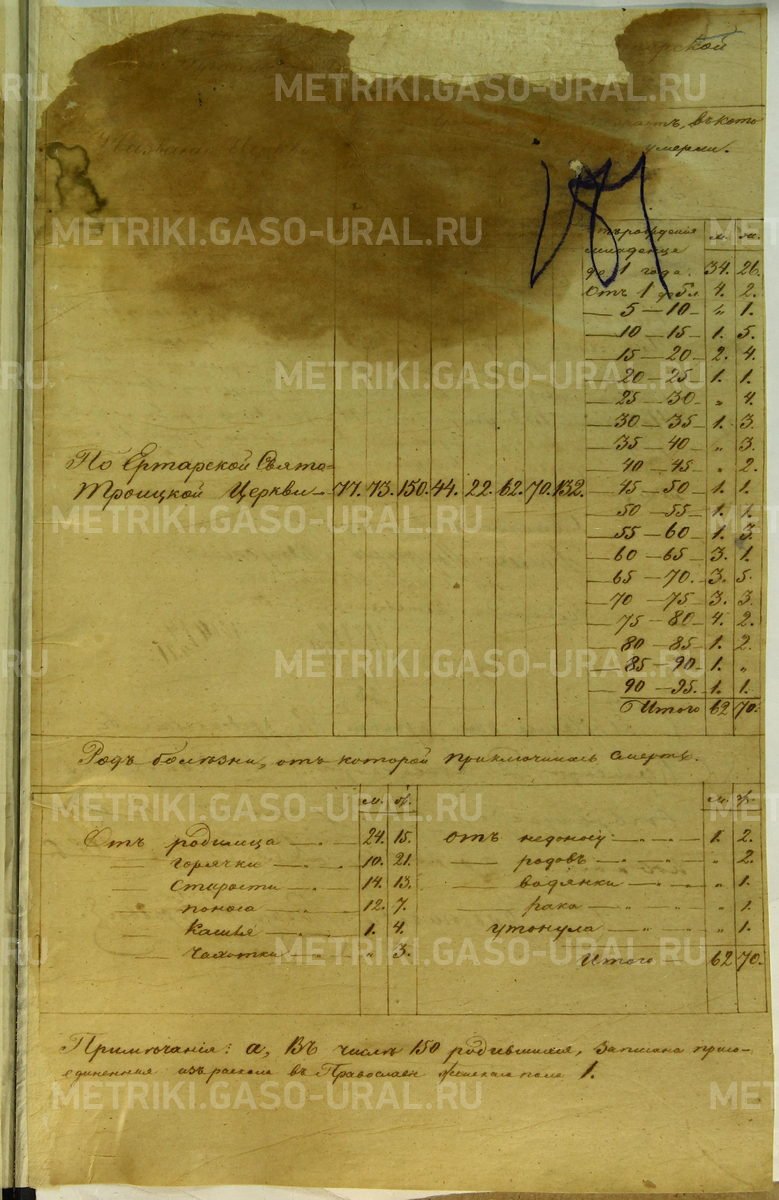 рской
Названіе
растъ, въ кото
умерли.
рожденія м. ж.
младенца
до 1 года. 34. 26.
Отъ 1 до 5л. 4. 2.
— 5 — 10 — „ 1.
— 10 — 15 — 1. 5.
— 15 — 20 — 2. 4.
— 20 — 25 — 1. 1.
— 25 — 30 — „ 4.
— 30 — 35 — 1. 3.
— 35 — 40 — „ 3.
— 40 — 45 — „ 2.
По Ертарской Свято-
Троицкой Церкви — 77. 73. 150. 44. 22. 62. 70. 132. — 45 — 50 — 1. 1.
— 50 — 55 — 1. 1.
— 55 — 60 — 1. 3.
— 60 — 65 — 3. 1.
— 65 — 70. — 3. 5.
— 70 — 75 — 3. 3.
— 75 — 80 — 4. 2.
— 80 — 85 — 1. 2.
— 85 — 90 — 1. „
— 90 — 95. — 1. 1.
Итого 62 70.
Родъ болѣзни, отъ которой приключилась смерть.
м. ж. м. ж.
Отъ родимца — „ — 24. 15. отъ недоносу — „ — „ — 1. 2.
— горячки — „ — 10. 21. — родовъ — „ — „ — „ 2.
— старости — „ — 14. 13. — водянки — „ — „ — „ 1.
— поноса — „ — 12. 7. — рака — „ — „ — „ 1.
— кашля — „ — 1. 4. утонула — „ — „ — „ 1.
— чахотки — „ — „ 3. Итого — 62 70.
Примѣчанія: а, Въ числѣ 150 родившихся, записана присо-
единенная изъ раскола въ Православіе женскаго пола 1.
METRIKI.GASO-URAL.RU